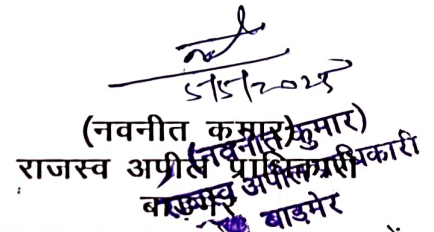 5/5/2025
(नवनीत कुमार)
राजस्व अपील प्राधिकारी
बाड़मेर
(नवनीत कुमार)
राजस्व अपील प्राधिकारी
बाड़मेर